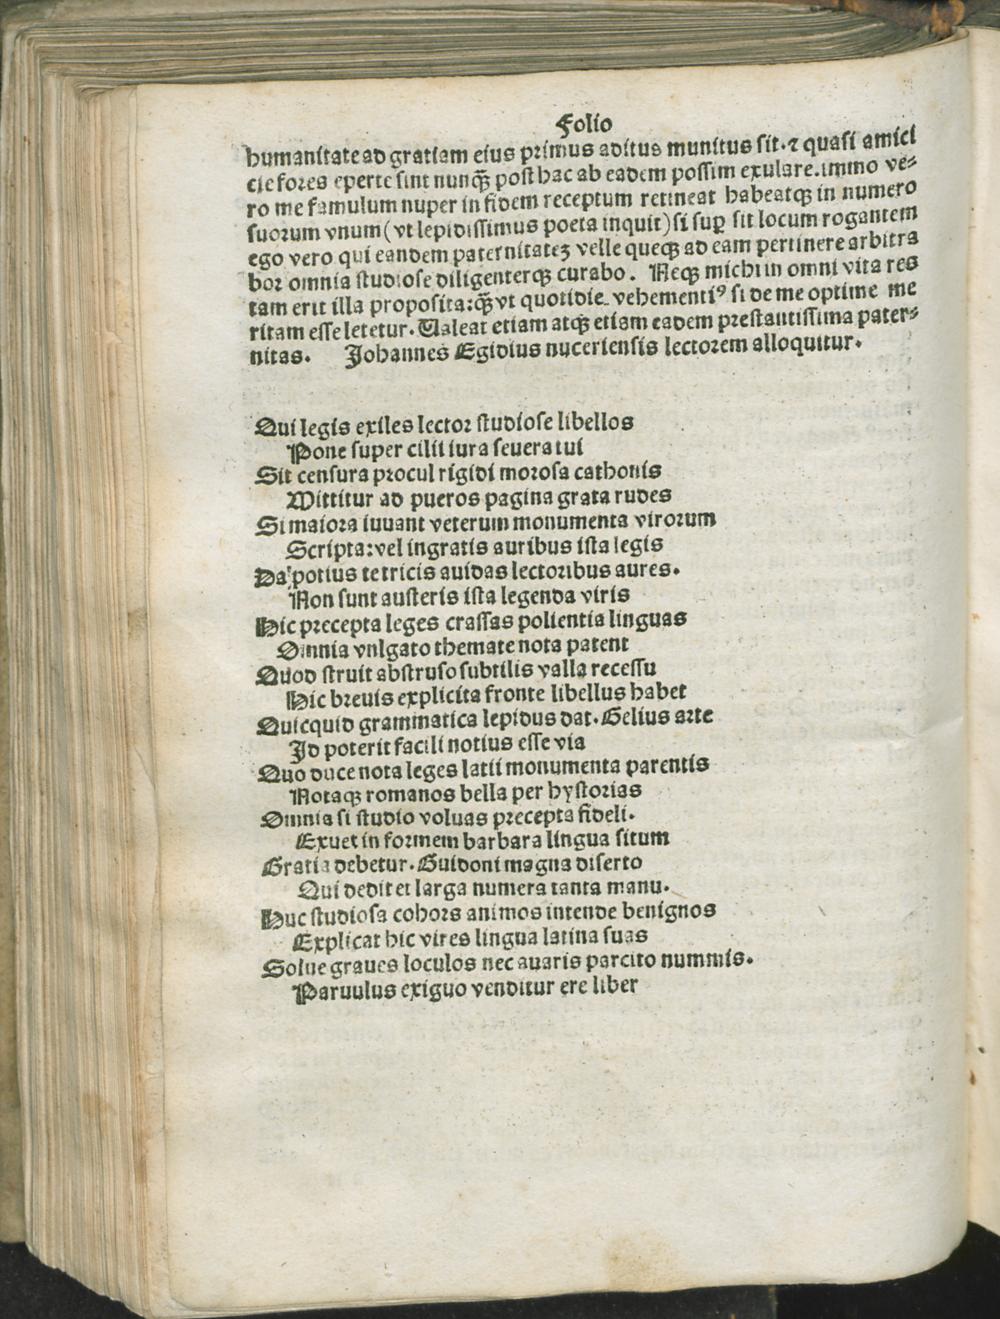 Folio
humanitate ad gratiam eius primus aditus munitus sit.⁊ quasi amici
cie fores eperte sint nunqꝫ̄ post hac ab eadem possim exulare.immo ve⸗
ro me famulum nuper in fidem receptum retineat habeatqꝫ in numero
suorum vnum (vt lepidissimus poeta inquit) si suꝑ sit locum rogantem
ego vero qui eandem paternitateꝫ velle queqꝫ ad eam pertinere arbitra
bor omnia studiose diligenterqꝫ curabo. Neqꝫ michi in omni vita res
tam erit illa proposita:qꝫ̄ vt quotidie vehementiꝰ si de me optime me
ritam esse letetur. Valeat etiam atqꝫ etiam eadem prestantissima pater⸗
nitas. Johannes Egidius nuceriensis lectorem alloquitur.
Qui legis exiles lector studiose libellos
Pone super cilii iura seuera tui
Sit censura procul rigidi morosa cathonis
Mittitur ad pueros pagina grata rudes
Si maiora iuuant veterum monumenta virorum
Scripta:vel ingratis auribus ista legis
Da potius tetricis auidas lectoribus aures.
Non sunt austeris ista legenda viris
Hic precepta leges crassas polientia linguas
Omnia vulgato themate nota patent
Quod struit abstruso subtilis valla recessu
Hic breuis explicita fronte libellus habet
Quicquid grammatica lepidus dat. Gelius arte
Id poterit facili notius esse via
Quo duce nota leges latii monumenta parentis
Notaqꝫ romanos bella per hystorias
Omnia si studio voluas precepta fideli.
Exuet in formem barbara lingua situm
Gratia debetur. Guidoni magna diserto
Qui dedit et larga numera tanta manu.
Huc studiosa cohors animos intende benignos
Explicat hic vires lingua latina suas
Solue graues loculos nec auaris parcito nummis.
Paruulus exiguo venditur ere liber